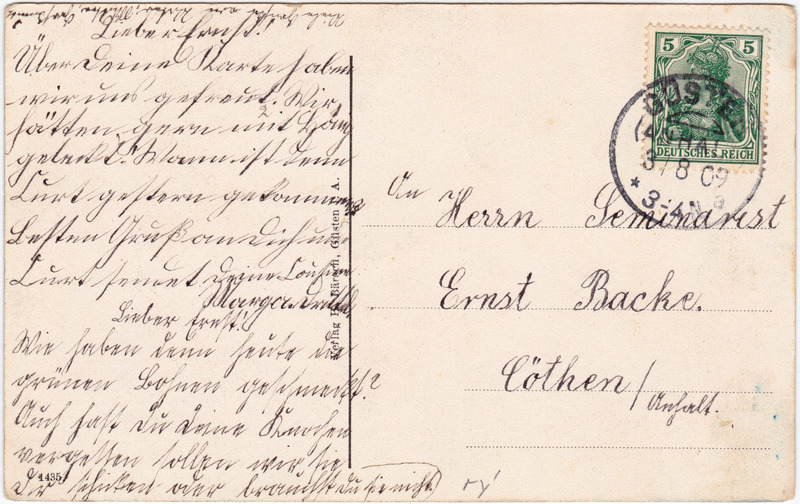 Lieber Ernst!
Über Deine Karte haben
wir uns gefreut. Wir
hätten gern mit
geleckt. Wann ist denn
Curt gestern gekommen?
Besten Gruß an Dich und
Curt sendet Deine Cousine
Marga
Lieber Ernst!
Wie haben denn heute die
grünen Bohnen geschmeckt?
Auch hast Du Deine Knochen
vergessen sollen wir sie
Dir schicken oder brauchst Du sie nicht.
1435
Verlag H. Bärsch, Güsten i. A.
5 5
DEUTSCHES REICH
GÜSTEN
(ANHALT)
3/8 09
* 3-4N
An
Herrn Seminarist
Ernst Backe.
Cöthen/
Anhalt.